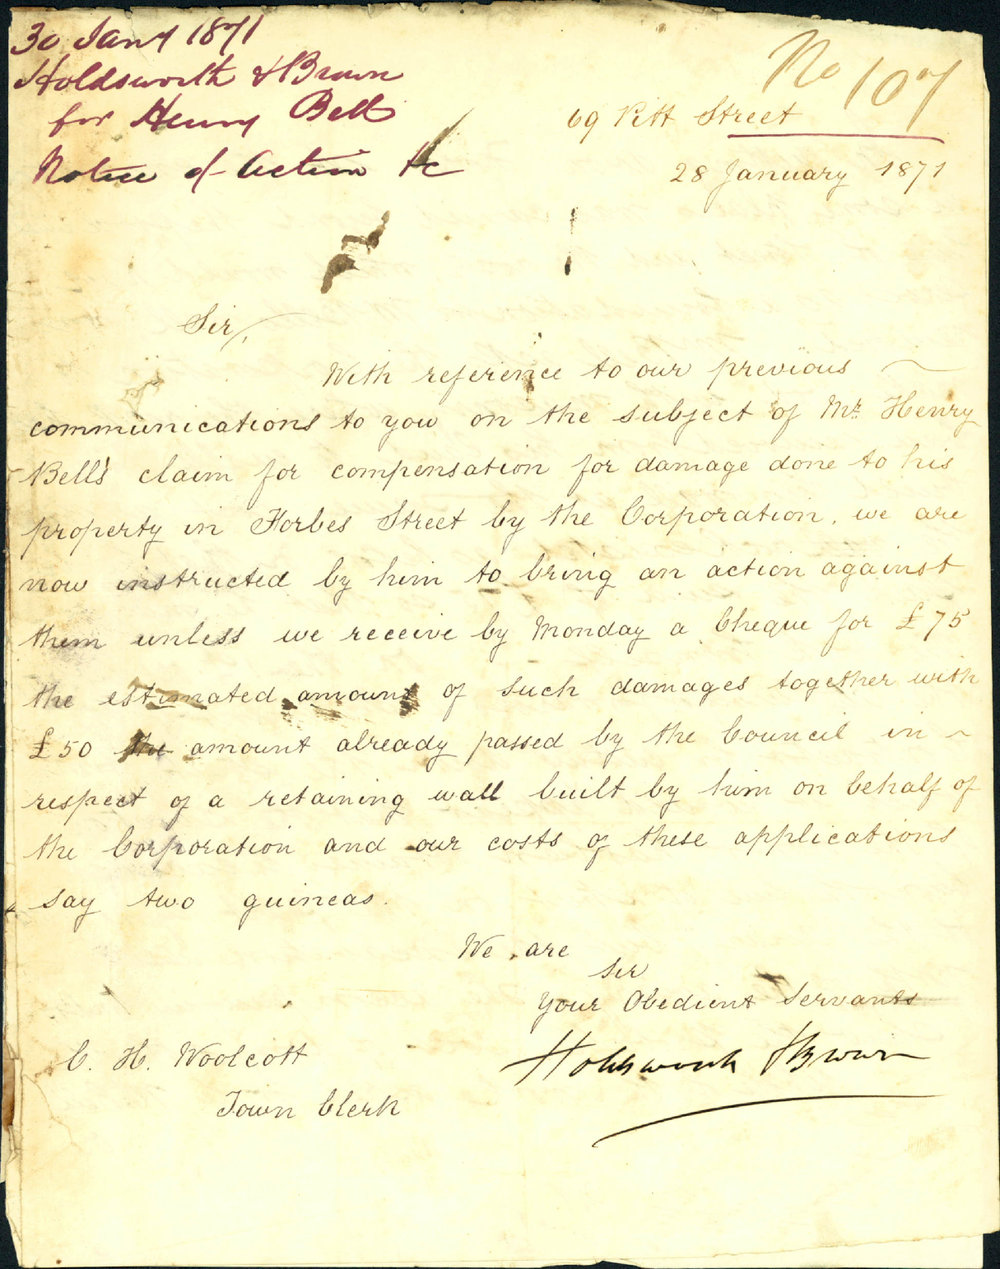 30 Jany 1871
Holdsworth & Brown
for Henry Bell
Notice of Action &c
No 107
69 Pitt Street
28 January 1871
Sir,
With reference to our previous
communications to you on the subject of Mr. Henry
Bell's claim for compensation for damage done to his
property in Forbes Street by the Corporation, we are
now instructed by him to bring an action against
them unless we receive by Monday a Cheque for £75
the estimated amount of such damages together with
£50 the amount already passed by the Council in
respect of a retaining wall built by him on behalf of
the Corporation and our costs of these applications
say two guineas.
We are
Sir
Your Obedient Servants
Holdsworth & Brown
C. H. Woolcott
Town Clerk